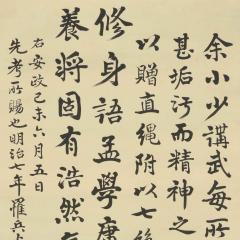 余小少講武每所
甚垢汚而精神之
以贈直繩附以七絶
修身語孟學庸
養將固有浩然
右安政己未六月五日
先考所賜也明治七年罹兵